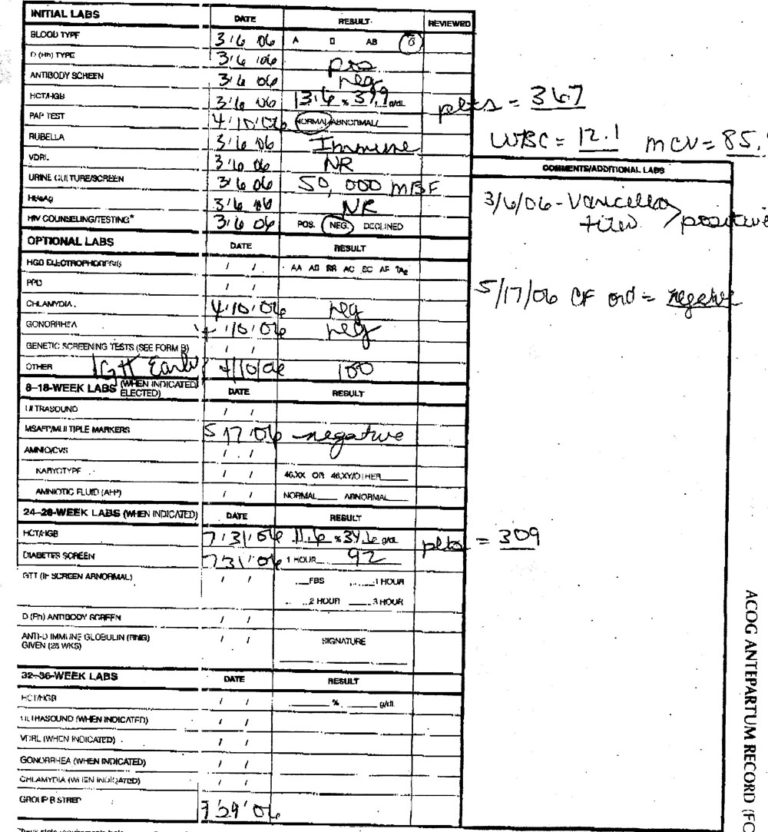 INITIAL LABS DATE RESULT REVIEWED
BLOOD TYPE 3 / 6 / 06 A B AB O
D (Rh) TYPE 3 / 6 / 06 pos
ANTIBODY SCREEN 3 / 6 / 06 neg
HCT/HGB 3 / 6 / 06 13.6 % 39.9 g/dL plts = 367
PAP TEST 4 / 10 / 06 NORMAL/ABNORMAL/
WBC = 12.1 MCV = 85.
RUBELLA 3 / 6 / 06 Immune
VDRL 3 / 6 / 06 NR
COMMENTS/ADDITIONAL LABS
URINE CULTURE/SCREEN 3 / 6 / 06 50,000 MBF
HBsAg 3 / 6 / 06 NR
3/6/06 - Varicella titer > positive
HIV COUNSELING/TESTING* 3 / 6 / 06 POS. NEG. DECLINED
OPTIONAL LABS DATE RESULT
HGB ELECTROPHORESIS / / AA AS SS AC SC AF TA2
PPD / /
5/17/06 CF = negative
CHLAMYDIA 4 / 10 / 06 neg
GONORRHEA 4 / 10 / 06 neg
GENETIC SCREENING TESTS (SEE FORM B) / /
OTHER 1GTT Early 4/10/06 100
8–18-WEEK LABS (WHEN INDICATED/ELECTED) DATE RESULT
ULTRASOUND / /
MSAFP/MULTIPLE MARKERS 5 / 17 / 06 negative
AMNIO/CVS / /
KARYOTYPE / / 46,XX OR 46,XY/OTHER
AMNIOTIC FLUID (AFP) / / NORMAL ABNORMAL
24–28-WEEK LABS (WHEN INDICATED) DATE RESULT
HCT/HGB 7 / 31 / 06 11.6 % 34.6 g/dL plts = 309
DIABETES SCREEN 7 / 31 / 06 1 HOUR 92
GTT (IF SCREEN ABNORMAL) / / FBS 1 HOUR
2 HOUR 3 HOUR
D (Rh) ANTIBODY SCREEN / /
ANTI-D IMMUNE GLOBULIN (RhIG) / / SIGNATURE
GIVEN (28 WKS)
32–36-WEEK LABS DATE RESULT
HCT/HGB / / % g/dL
ULTRASOUND (WHEN INDICATED) / /
VDRL (WHEN INDICATED) / /
GONORRHEA (WHEN INDICATED) / /
CHLAMYDIA (WHEN INDICATED) / /
GROUP B STREP 9 / 29 / 06
ACOG ANTEPARTUM RECORD (FO